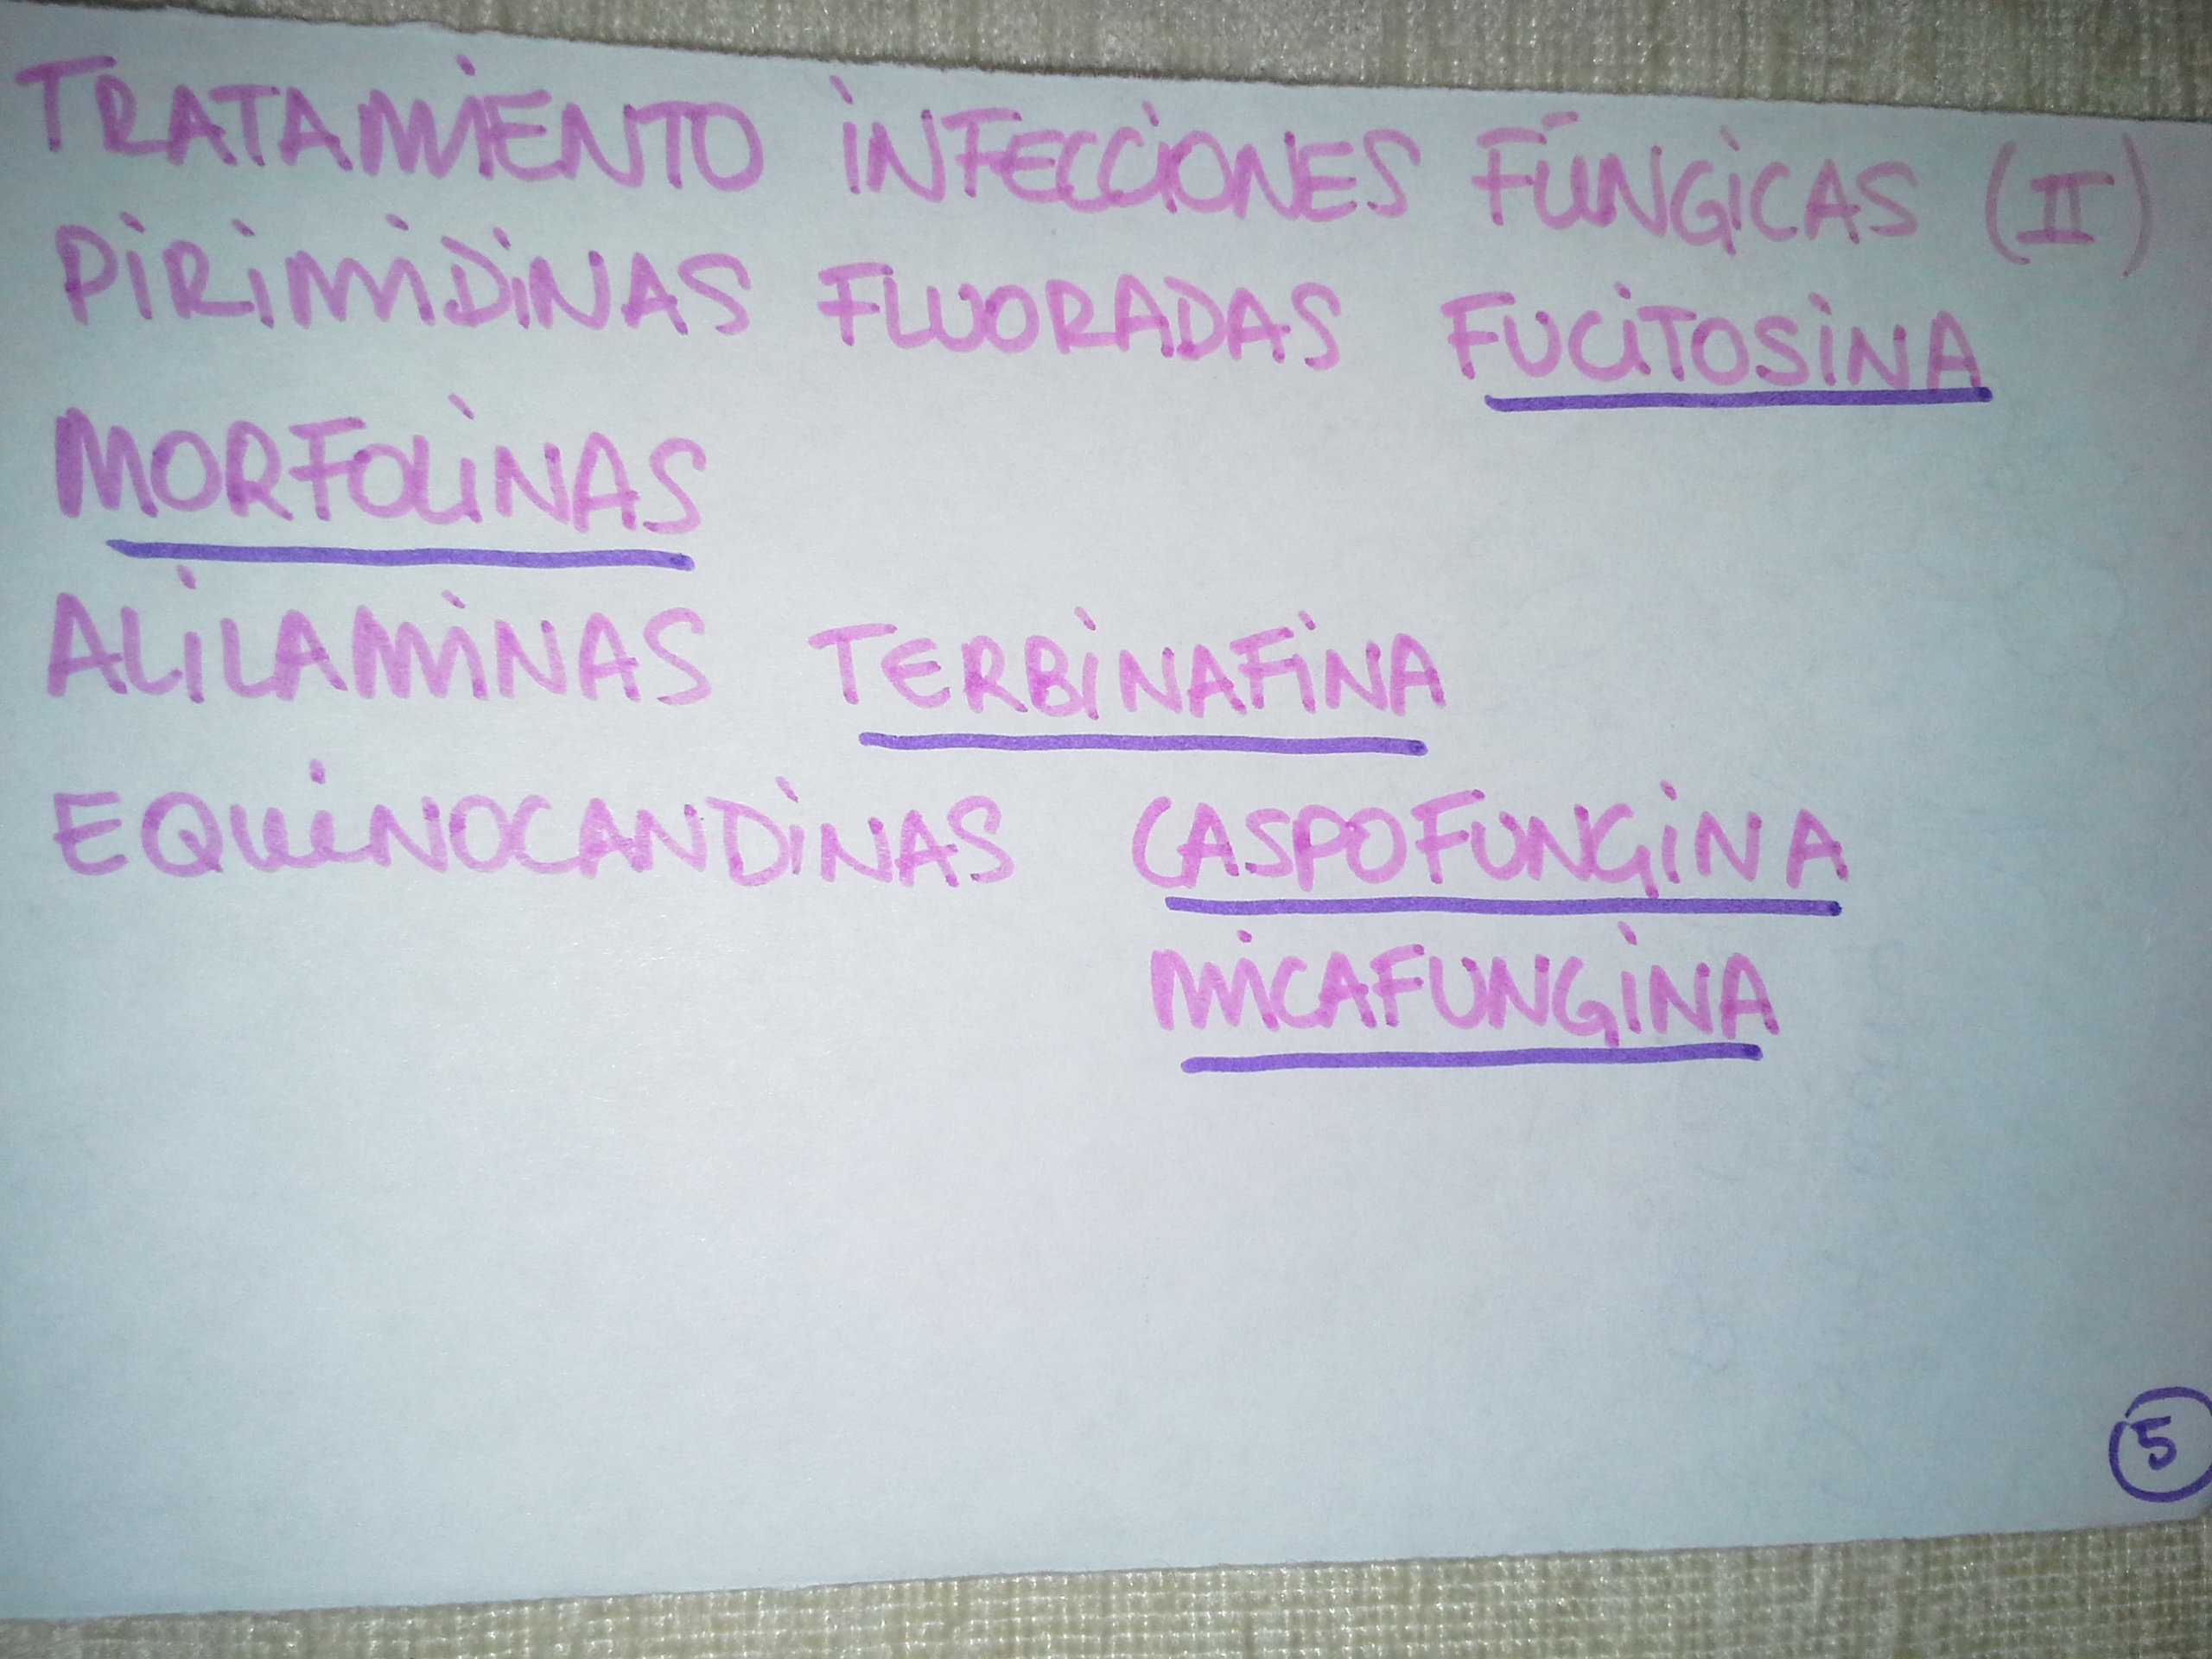 TRATAMIENTO INFECCIONES FÚNGICAS (II)
PIRIMIDINAS FLUORADAS FUCITOSINA
MORFOLINAS
ALILAMINAS TERBINAFINA
EQUINOCANDINAS CASPOFUNGINA
MICAFUNGINA
5